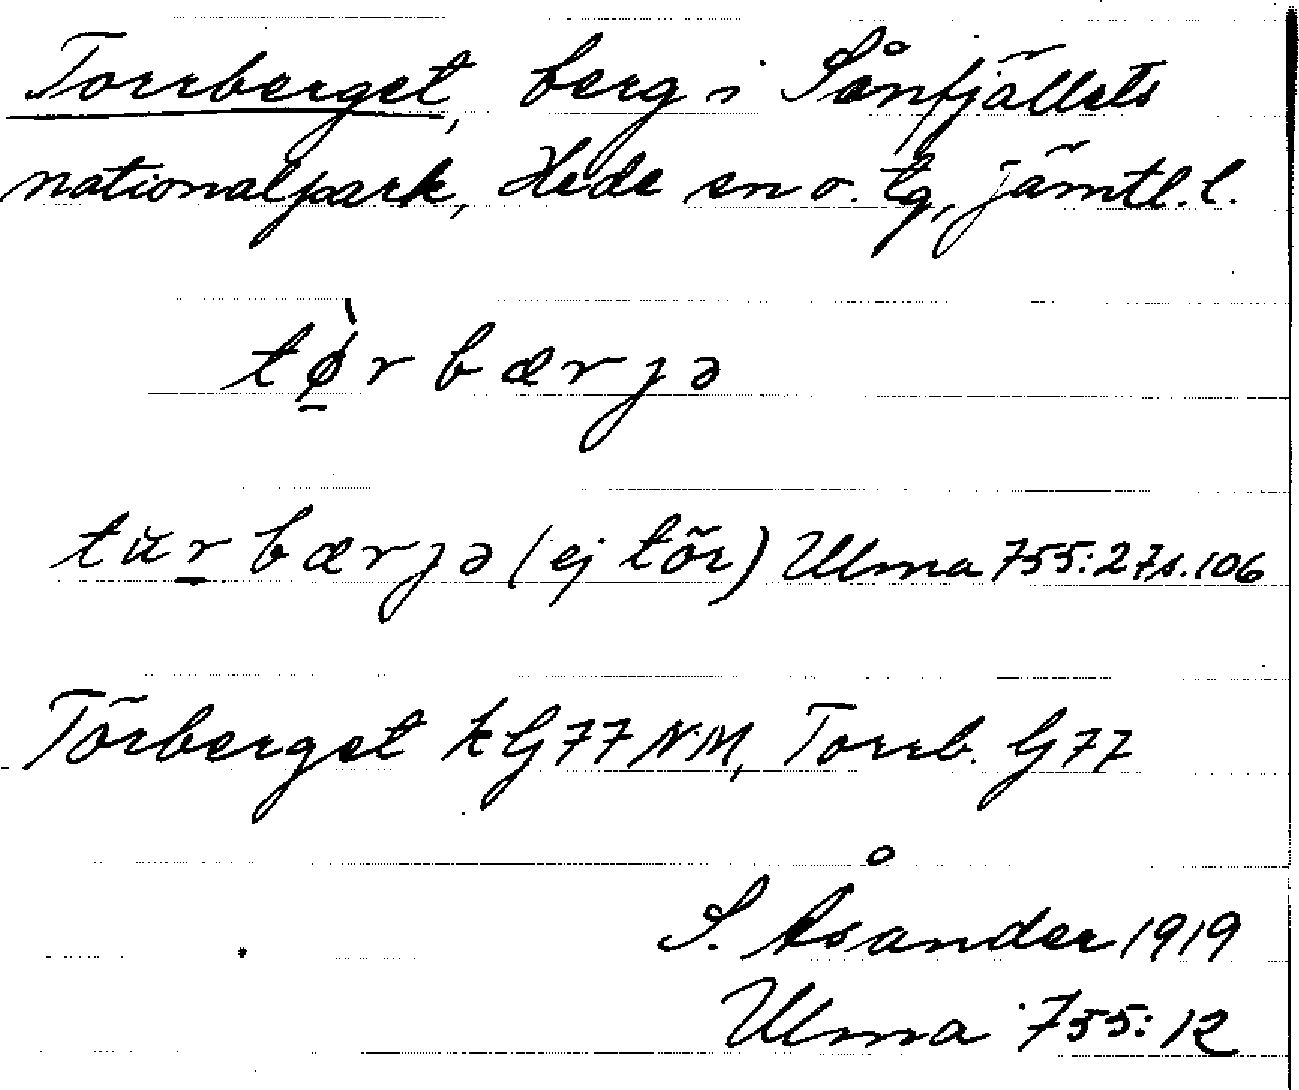 Torrberget, berg i Sånfjällets
nationalpark, Hede sn o. tg, Jämtl. l.
tø̠̀r bærjə
tu̇r̠bærjə (ej tõr) Ulma 755:27 s. 106
Tõrberget k G77 NM, Torrb. G77
S. Åsander 1919
Ulma 755:12